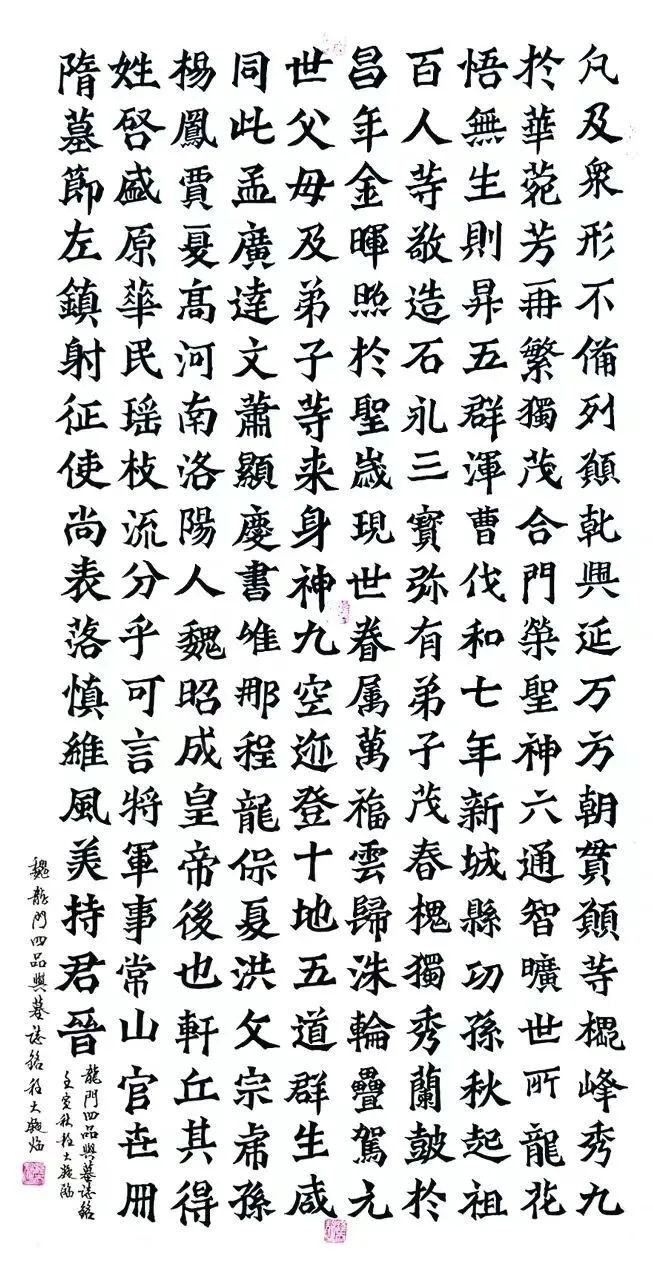 凡及衆形不備列願乹興延万方朝貫願等槐峰秀九
於華菀芳再繁獨茂合門榮聖神六通智曠世所龍花
悟無生則昇五群渾曹伐和七年新城縣功孫秋起祖
百人等敬造石永三寶弥有弟子茂春槐獨秀蘭鼓於
昌年金暉照於聖歲現世眷属萬福雲歸洙輪疊駕元
世父母及弟子等来身神九空迩登十地五道群生咸
同此孟廣達文蕭顯慶書唯那程龍保夏洪文宗席孫
楊鳳賈戛高河南洛陽人魏昭成皇帝後也軒丘其得
姓啓盛原華民瑶枝流分乎可言將軍事常山官世冊
隋墓節左鎮射征使尚表落慎維風美持君晉
龍門四品與墓誌銘
壬寅秋程大凝臨
魏龍門四品與墓誌銘程大凝臨